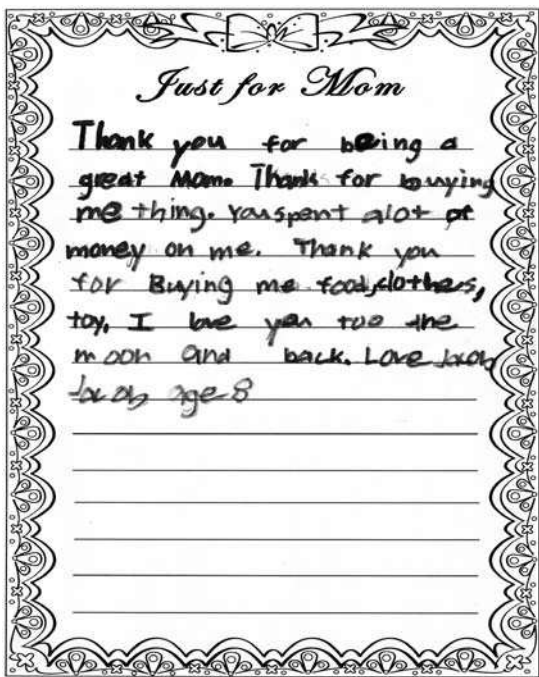 Just for Mom
Thank you for being a
great Mom. Thanks for buying
me thing. You spent alot of
money on me. Thank you
for Buying me food, clothers,
toy. I love you too the
moon and back. Love Jacob
Jacob age 8